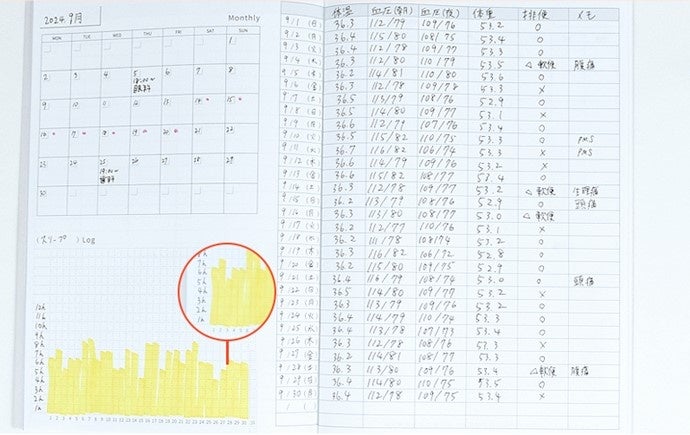 2024. 9月
Monthly
MON TUE WED THU FRI SAT SUN
1
2 3 4 5 6 7 8
18:00~
眼科
9 10 11 12 13 14 15
16 17 18 19 20 21 22
23 24 25 26 27 28 29
19:00~
歯科
30
(スリープ) Log
8h
7h
6h
5h
4h
3h
2h
1h
1 2 3 4 5 6
12h
11h
10h
9h
8h
7h
6h
5h
4h
3h
2h
1h
1 2 3 4 5 6 7 8 9 10 11 12 13 14 15 16 17 18 19 20 21 22 23 24 25 26 27 28 29 30 31
体温 血圧(朝) 血圧(夜) 体重 排便 メモ
9/1 (日) 36.3 112/79 109/76 53.2 ○
9/2 (月) 36.4 115/80 108/75 53.4 ○
9/3 (火) 36.4 112/78 109/77 53.3 ○
9/4 (水) 36.3 112/80 110/79 53.5 △軟便 腹痛
9/5 (木) 36.2 114/81 110/80 53.6 ○
9/6 (金) 36.3 112/78 109/78 53.3 ×
36.5 113/79 108/76 52.9 ○
9/8 (日) 36.5 114/80 109/77 53.1 ×
9/9 (月) 36.6 112/79 107/76 53.4 ○
9/10 (火) 36.5 115/82 110/75 53.3 ○ PMS
9/11 (水) 36.7 116/82 106/74 53.3 × PMS
9/12 (木) 36.6 114/79 109/76 53.2 ×
9/13 (金) 36.6 115/82 108/78 53.4 ○
9/14 (土) 36.3 112/78 109/77 53.2 △軟便 生理痛
9/15 (日) 36.2 113/79 108/76 52.9 ○ 頭痛
9/16 (月) 36.3 113/80 108/77 53.0 △軟便
9/17 (火) 36.2 112/77 110/76 53.1 ×
9/18 (水) 36.2 111/78 108/74 53.2 ○
9/19 (木) 36.3 116/82 106/72 52.8 ○
9/20 (金) 36.2 115/80 109/75 52.9 ○
9/21 (土) 36.4 116/79 108/74 53.0 ○ 頭痛
9/22 (日) 36.5 114/80 109/77 53.2 ×
9/23 (月) 36.3 113/79 109/76 53.2 ○
9/24 (火) 36.4 114/79 110/74 53.3 ○
9/25 (水) 36.4 113/78 107/73 53.4 ○
9/26 (木) 36.3 112/78 108/76 53.3 ×
9/27 (金) 36.2 114/81 108/77 53.3 ○
9/28 (土) 36.3 113/80 109/76 53.4 △軟便 腹痛
9/29 (日) 36.4 114/80 110/75 53.5 ○
9/30 (月) 36.4 112/78 109/75 53.4 ×
/ ( )